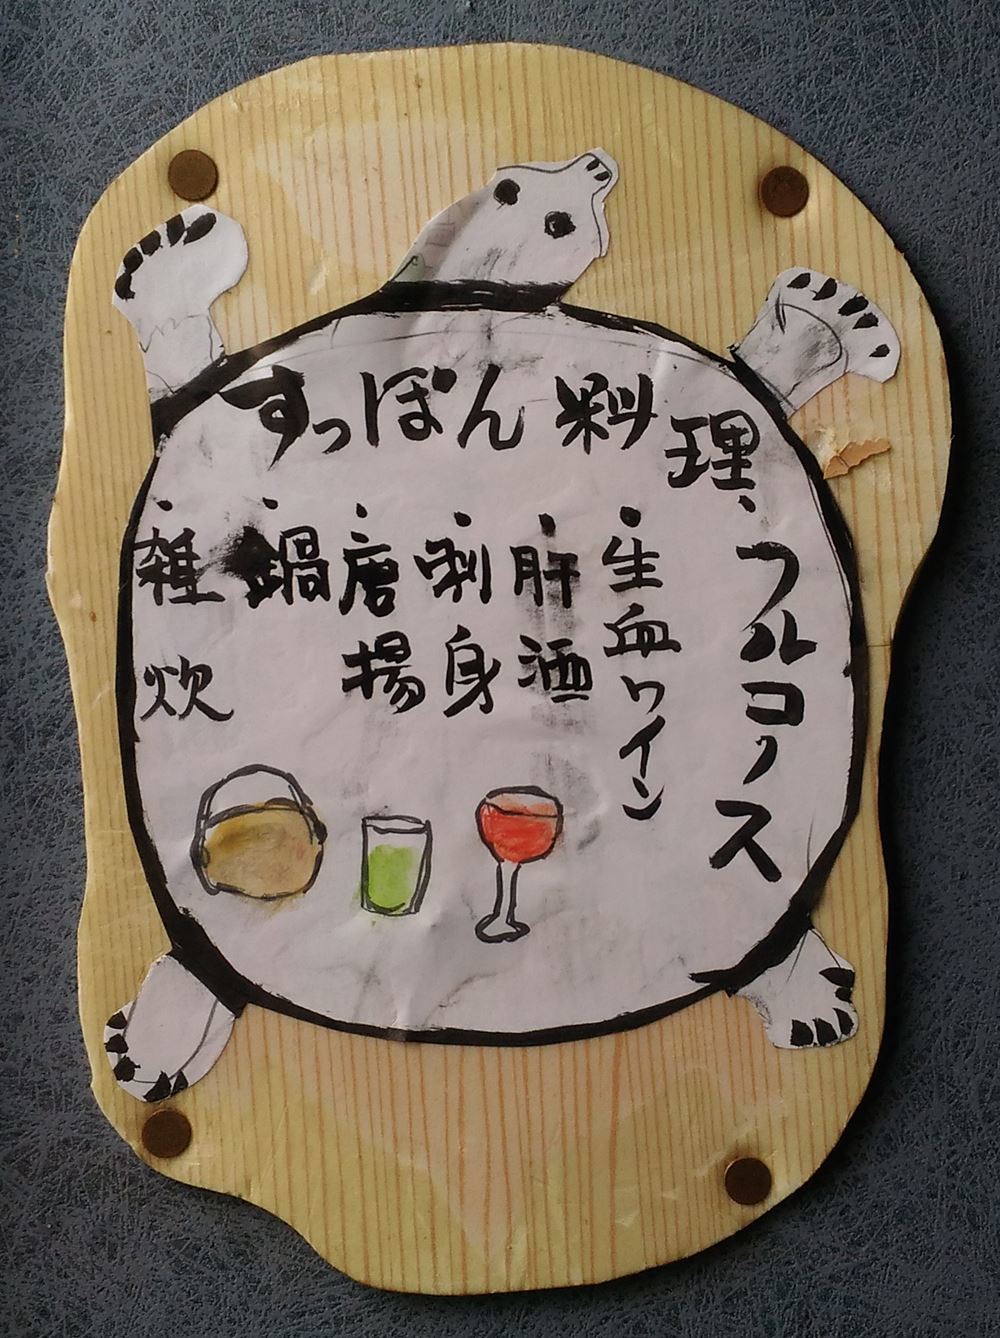 すっぽん料理、フルコース
・生血ワイン
・肝酒
・刺身
・唐揚
・鍋
・雑炊